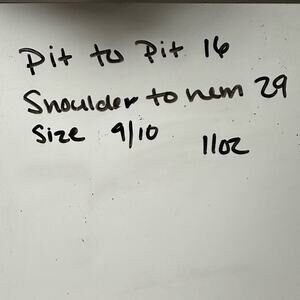 Pit to Pit 16
Shoulder to hem 29
Size 9/10
11oz